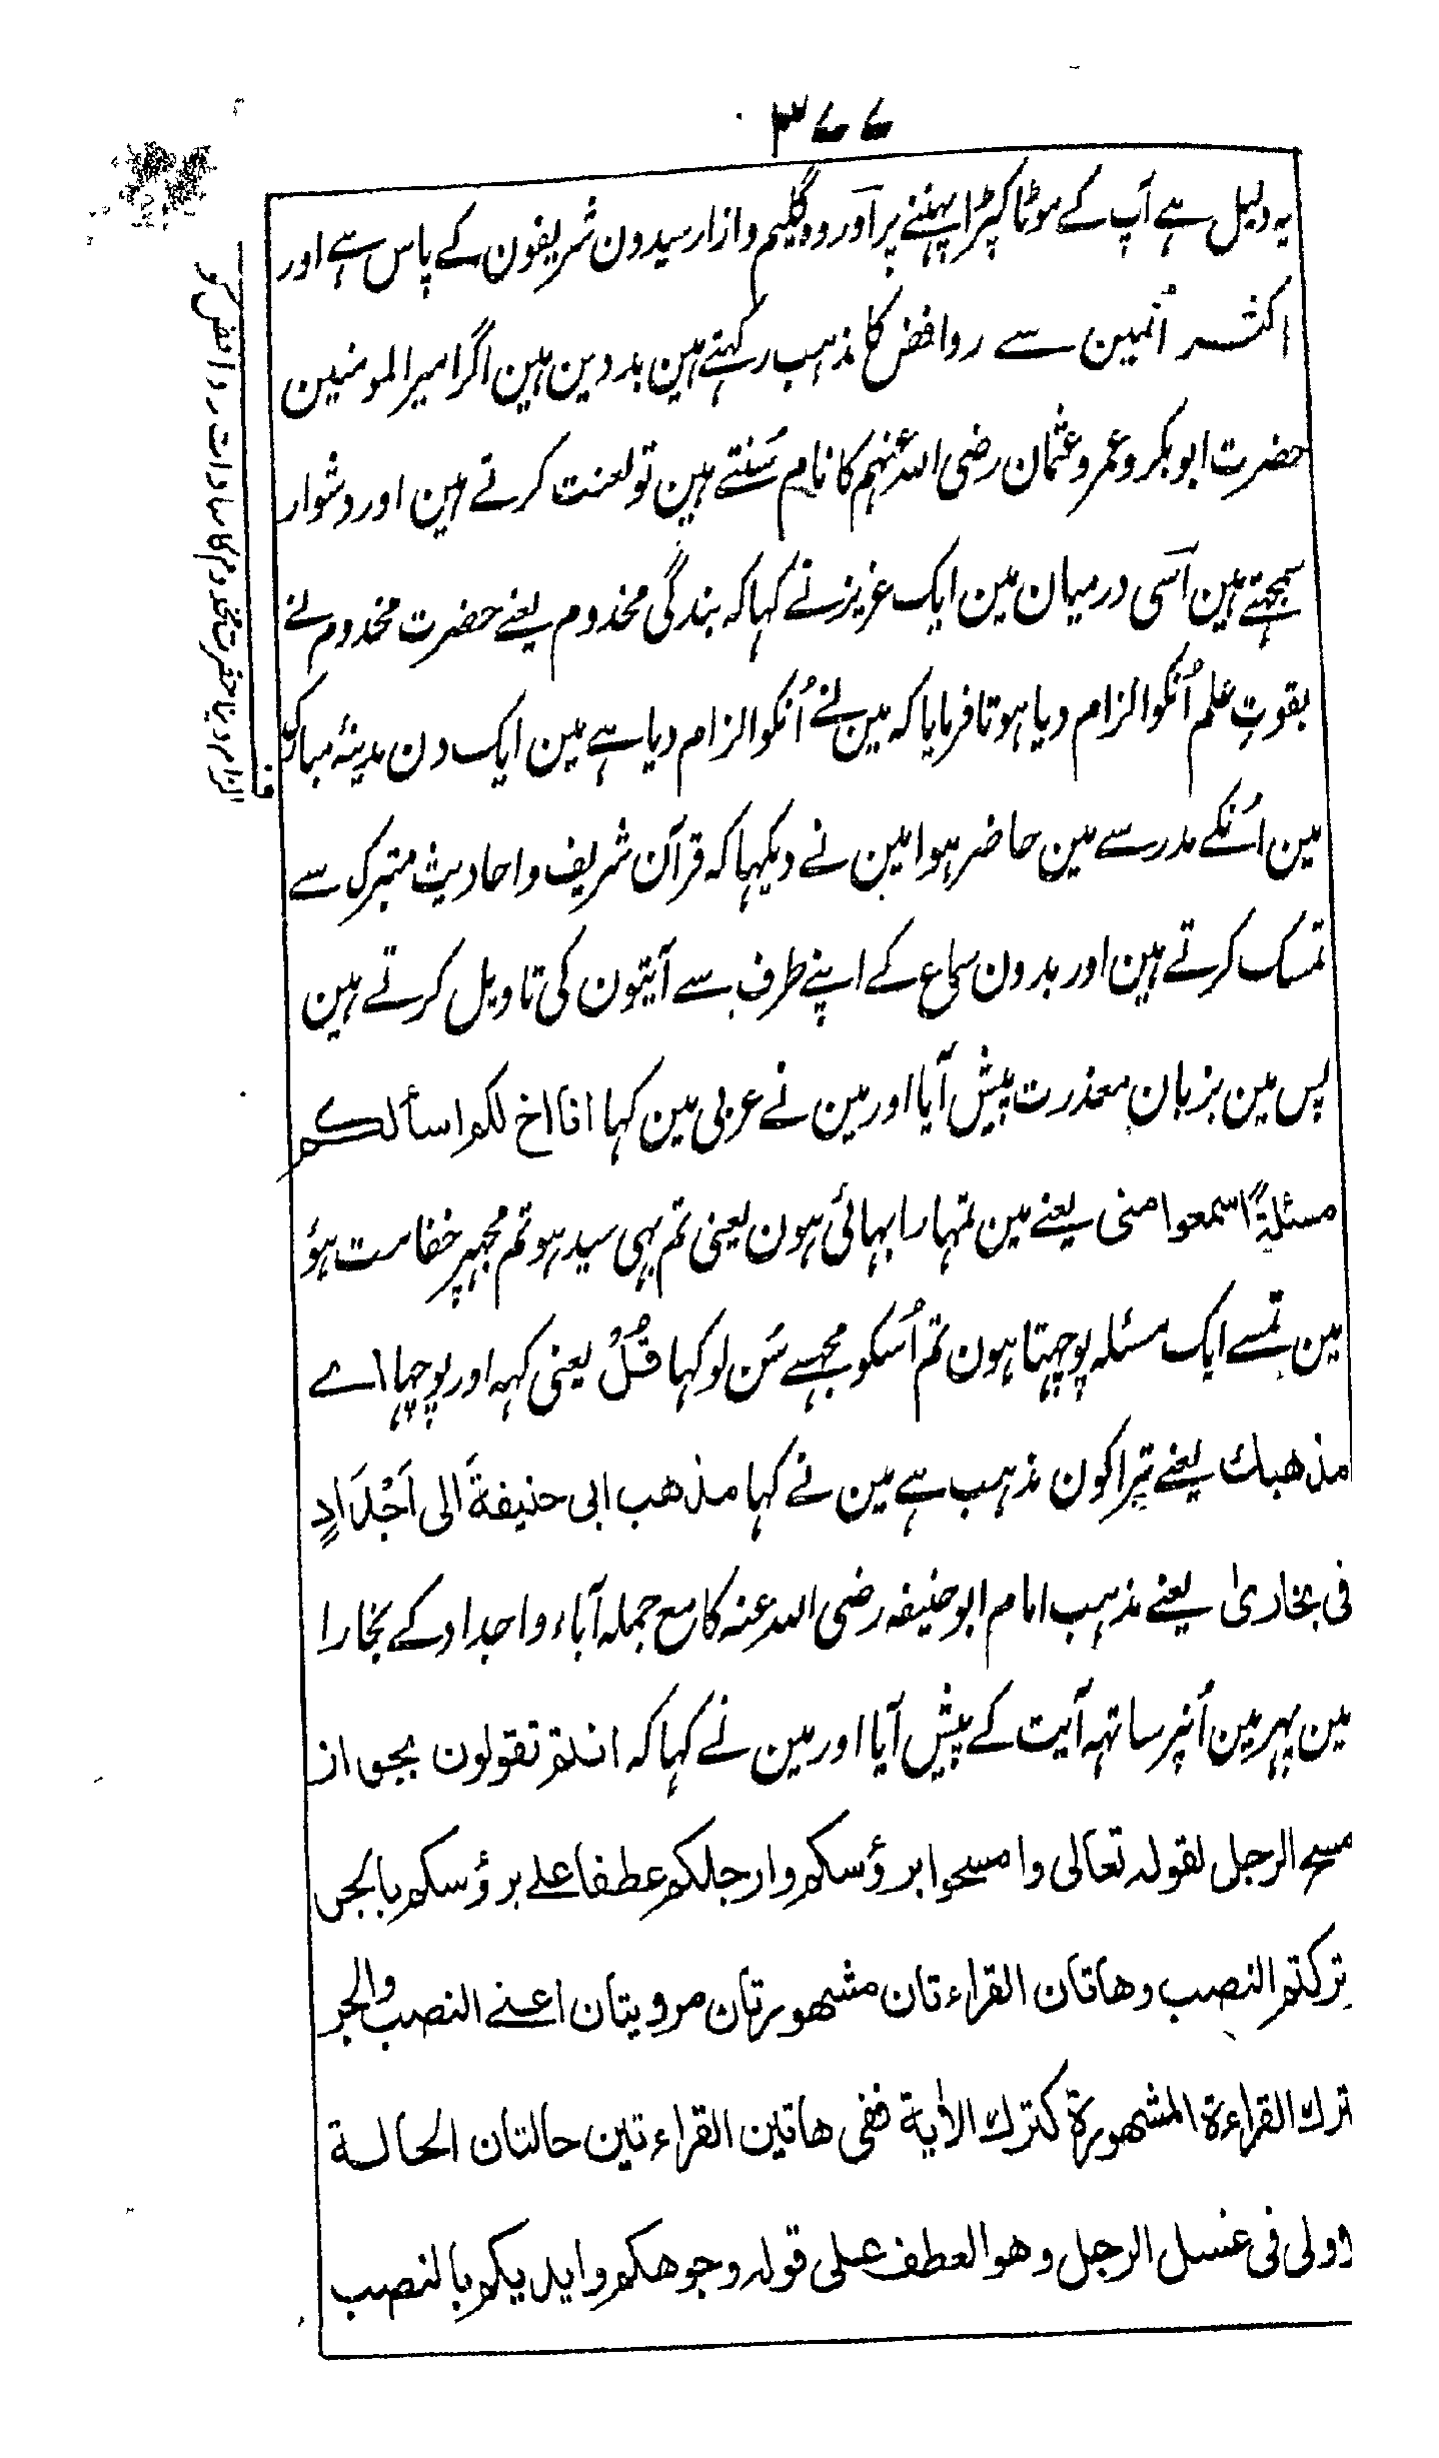 ۳۷۷
یہ دلیل ہے آپ کے موٹا کپڑا پہننے پر آور وہ گلیم و ازار سیدون شریفون کے پاس ہے اور
اکثر اُنمین سے روافض کا مذہب رکہتے ہین بددین ہین اگر امیرالمومنین
حضرت ابوبکر و عمر و عثمان رضی اللہ عنہم کا نام سُنتے ہین تو لعنت کرتے ہین اور دشوار
سمجہتے ہین آسی درمیان مین ایک عزیز نے کہا کہ بندگی مخدوم یعنے حضرت مخدوم نے
بقوتِ علم اُنکو الزام دیا ہوتا فرمایا کہ مین نے اُنکو الزام دیا ہے مین ایک دن مدینۂ مبارک
مین اُنکے مدرسے مین حاضر ہوا مین نے دیکہا کہ قرآن شریف و احادیث متبرک سے
تمسک کرتے ہین اور بدون سماع کے اپنے طرف سے آیتون کی تاویل کرتے ہین
پس مین بزبان معذرت پیش آیا اور مین نے عربی مین کہا انا اخ لکم اسألکم
مسئلةً اسمعوا منی یعنے مین تمہارا بہائی ہون یعنی تم بہی سید ہو تم مجہپر خفا مت ہوٗ
مین تمسے ایک مسئلہ پوچہتا ہون تم اُسکو مجہسے سُن لو کہا قُلْ یعنی کہہ اور پوچہا اے
مذهبك یعنے تیرا کون مذہب ہے مین نے کہا مذهب ابی حنیفةَ الی اَجْدَادٍ
فی بخاریٰ یعنے مذہب امام ابو حنیفہ رضی اللہ عنہ کا مع جملہ آباء و اجداد کے بخارا
مین پہر مین اُنپر ساتہہ آیت کے پیش آیا اور مین نے کہا کہ انتم تقولون بجواز
مسح الرجل لقوله تعالی وامسحوا برؤسکم وارجلکم عطفا علے برؤسکم بالجر
ترکتم النصب وهاتان القراءتان مشهورتان مرویتان اعنے النصب والجر
ترك القراءة المشهورة کترك الاٰیة ففی هاتین القراءتین حالتان الحالة
اولی فی غسل الرجل وهو العطف علی قوله وجوهکم وایدیکم بالنصب
ف
الزام دینا حضرت مخدوم کا سادات روافض کو